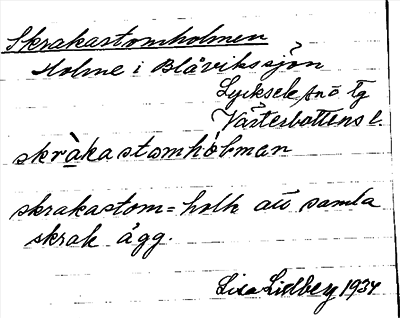 Skrakastomholmen
Holme i Blåvikssjön
Lycksele Tg
Västerbottens l.
skràkastomhòlman
skrakastom = holk att samla
skrak ägg.
Lisa Lidberg 1934